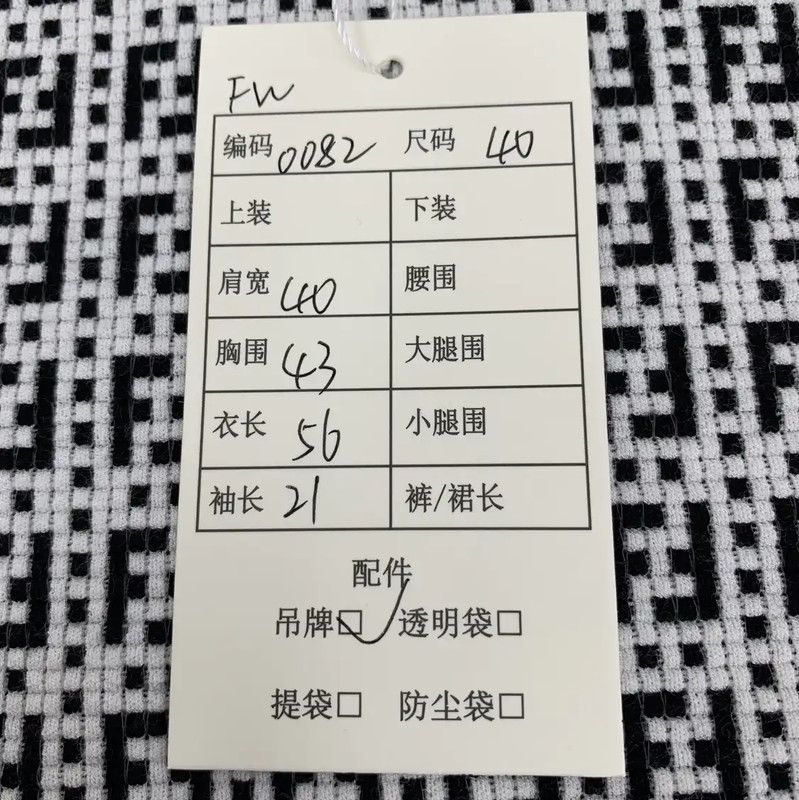 FW
编码 0082 尺码 40
上装 下装
肩宽 40 腰围
胸围 43 大腿围
衣长 56 小腿围
袖长 21 裤/裙长
配件
吊牌☑ 透明袋□
提袋□ 防尘袋□